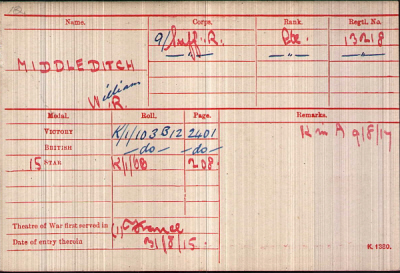 Name. Corps. Rank. Regtl. No.
9/Suff. R. Pte. 13218
MIDDLEDITCH
William
R.
Medal. Roll. Page. Remarks.
VICTORY K/1/103 B12 2401 K in A 9/8/17
BRITISH -do- -do-
15 STAR K/1/6B 208.
Theatre of War first served in (1) France
Date of entry therein 31/8/15.
K 1380.